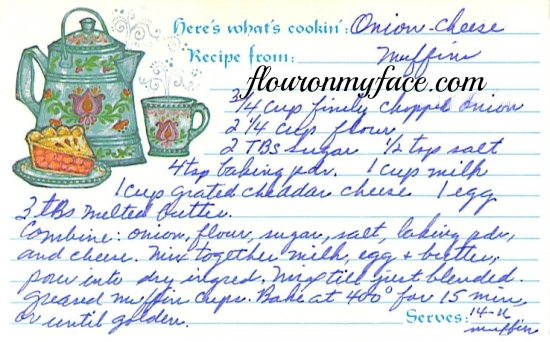 Here's what's cookin': Onion-Cheese
Recipe from: Muffins
flouronmyface.com
3/4 cup finely chopped onion
2 1/4 cup flour
2 TBs sugar 1/2 tsp salt
4 tsp baking pdr. 1 cup milk
1 cup grated cheddar cheese 1 egg
3 TBs melted butter.
Combine: onion, flour, sugar, salt, baking pdr,
and cheese. Mix together milk, egg + butter,
pour into dry ingred. Mix till just blended.
Greased muffin cups. Bake at 400° for 15 min,
or until golden. Serves: 14-16
muffins